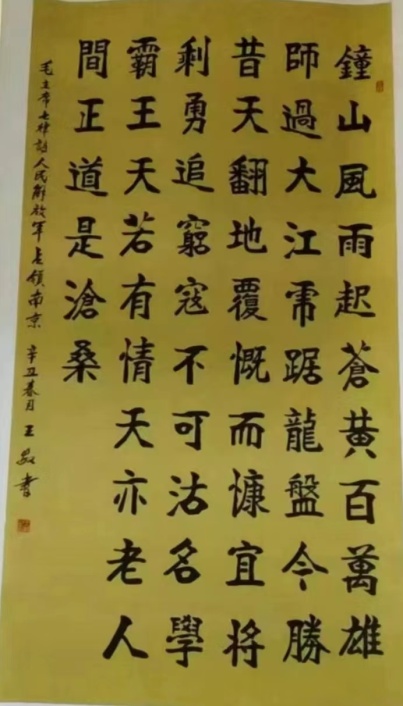 鐘山風雨起蒼黃百萬雄
師過大江虎踞龍盤今勝
昔天翻地覆慨而慷宜將
剩勇追窮寇不可沽名學
霸王天若有情天亦老人
間正道是滄桑
毛主席七律詩人民解放军占领南京 辛丑春月 王書